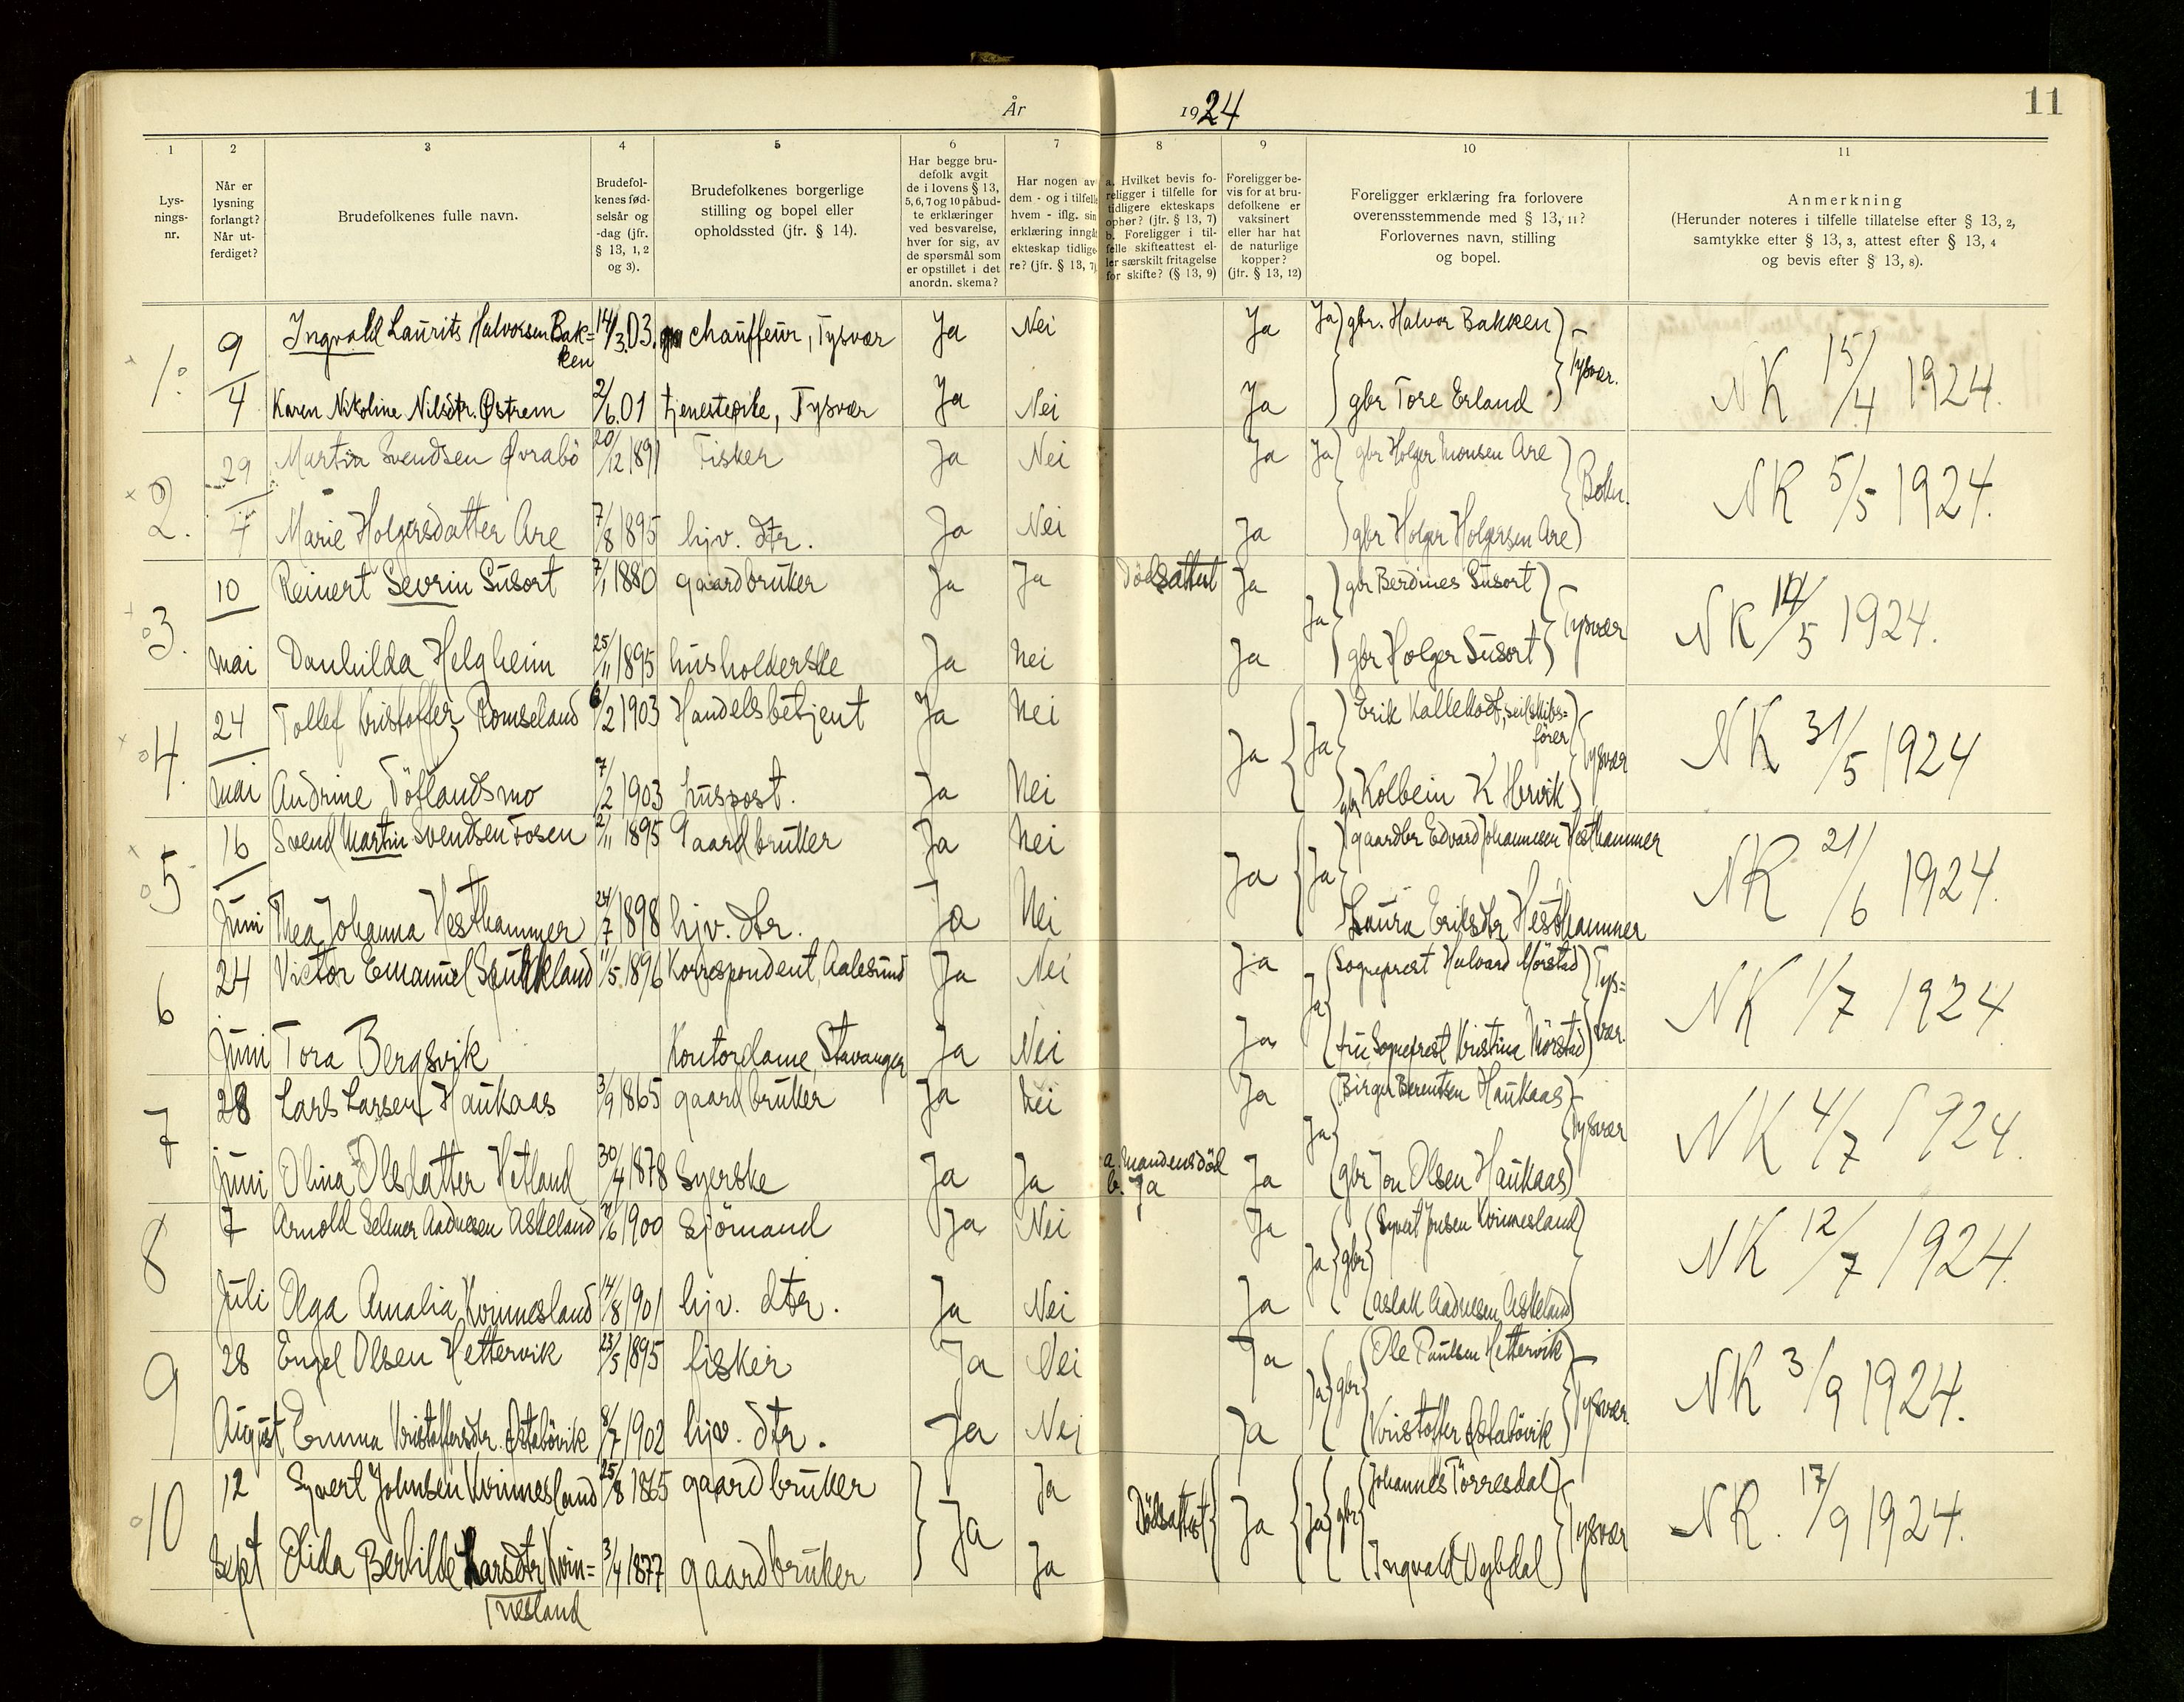 År 1924
11
1 2 3 4 5 6 7 8 9 10 11
Lys-
nings-
nr.
Når er
lysning
forlangt?
Når ut-
ferdiget?
Brudefolkenes fulle navn.
Brudefol-
kenes fød-
selsår og
-dag (jfr.
§ 13, 1, 2
og 3).
Brudefolkenes borgerlige
stilling og bopel eller
opholdssted (jfr. § 14).
Har begge bru-
defolk avgit
de i lovens § 13,
5, 6, 7 og 10 påbud-
te erklæringer
ved besvarelse,
hver for sig, av
de spørsmål som
er opstillet i det
anordn. skema?
Har nogen av
dem - og i tilfelle
hvem - iflg. sin
erklæring inngåt
ekteskap tidlige-
re? (jfr. § 13, 7)
a. Hvilket bevis fo-
religger i tilfelle for
tidligere ekteskaps
ophør? (jfr. § 13, 7)
b. Foreligger i til-
felle skifteattest el-
ler særskilt fritagelse
for skifte? (§ 13, 9)
Foreligger be-
vis for at bru-
defolkene er
vaksinert
eller har hat
de naturlige
kopper?
(jfr. § 13, 12)
Foreligger erklæring fra forlovere
overensstemmende med § 13, 11?
Forlovernes navn, stilling
og bopel.
Anmerkning
(Herunder noteres i tilfelle tillatelse efter § 13, 2,
samtykke efter § 13, 3, attest efter § 13, 4
og bevis efter § 13, 8).
1. 9/4 Ingvald Laurits Halvorsen Bak=
ken 14/3.03. chauffeur, Tysvær Ja Nei Ja Ja gbr. Halvor Bakken Tysvær. NK 15/4 1924.
Karen Nikoline Nilsdtr. Østrem 2/6.01 tjenestepike, Tysvær Ja Nei Ja gbr Tore Erland
2. 29/4 Martin Svendsen Øvrabö 20/12 1891 Fisker Ja Nei Ja Ja gbr Holger Monsen Are Bokn. NK 5/5 1924.
Marie Holgersdatter Are 7/8 1895 hjv. dtr. Ja Nei Ja gbr Holger Holgersen Are
3. 10 Reinert Sevrin Susort 7/1 1880 gaardbruker Ja Ja Dödsattest Ja Ja gbr Berdines Susort Tysvær NK 5 1924.
mai Danhilda Helgheim 25/11 1895 husholderske Ja Nei Ja gbr Holger Susort
4. 24 Tollef Kristoffer Romseland 6/2 1903 Handelsbetjent Ja Nei Ja Ja Erik Kallekodt, seilskibs=
fører Tysvær NK 31/5 1924
mai Andrine Töflandsmo 7/2 1903 huspost. Ja Nei gbr Kolbein K Hervik
5 16 Svend Martin Svendsen Fosen 2/11 1895 Gaardbruker Ja Nei Ja Ja gaardbr Edvard Johannesen Hesthammer NK 21/6 1924.
Juni Thea Johanna Hesthammer 24/7 1898 hjv. dtr. Ja Nei Laura Eriksdtr Hesthammer
6 24 Victor Emanuel 11/5.1896 Korrespondent, Aalesund Ja Nei Ja Ja Sogneprest Halvard Mörstad Tys=
vær. NK 1/7 1924
Juni Tora Bergsvik Kontordame, Stavanger Ja Nei Ja fru Sogneprest Kristina Mörstad
7 28 Lars Larsen Haukaas 3/9 1865 gaardbruker Ja Nei Ja Ja Birger Berentsen Haukaas Tysvær NK 4/7 1924.
juni Olina Olsdatter Hetland 30/4 1878 Syerske Ja Ja a. mandens död
b. Ja Ja gbr Jon Olsen Haukaas
8 7 Arnold Selmer Aadnesen Askeland 1900 Sjömand Ja Nei Ja Ja gbr Syvert Jonsen Kvinnesland NK 12/7 1924.
Juli Olga Amalia Kvinnesland 14/8 1901 hjv. dtr. Ja Nei Ja Aslak Aadnesen Askeland
9 28 Engel Olsen Hettervik 23/5 1895 fisker Ja Nei Ja Ja gbr Ole Paulsen Hettervik Tysvær. NK 3/9 1924.
August Emma Kristoffersdtr. Østabövik 8/7 1902 hjv. dtr. Ja Nei Ja Kristoffer Østabövik
10 12 Syvert Johnsen Kvinnesland 25/8 1865 gaardbruker Ja Ja Dödsattest Ja Ja gbr Johannes Törresdal Tysvær NK. 17/9 1924.
Sept Elida Berhilde Larsdtr Kvin=
nesland 3/4 1877 gaardbruker Ja Ingvald Dybdal